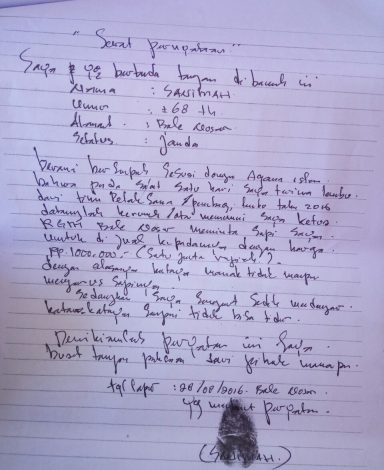 "Surat pernyataan"
Saya yg bertanda tangan di bawah ini
Nama : SANIMAH.
Umur : ± 68 th
Alamat : Bale
Setatus : janda
berani bersumpah sesuai dengan Agama islam.
bahwa pada saat satu hari saya terima
dari tim Pelaksana 2016
datanglah kerumah saya ketua
Bale meminta sapi saya.
untuk di jual kepadanya dengan harga.
Rp. 1000.000.- (satu juta rupiah).
dengan alasanya katanya tidak mampu
mengurus sapinya.
Sedangkan saya sangat sedih mendengar
sampai tidak bisa tidur.
Demikianlah pernyataan ini saya.
buat tanpa paksaan dari pihak manapun.
tgl : 28/08/2016. Bale
yg membuat pernyataan.
(SANIMAH.)